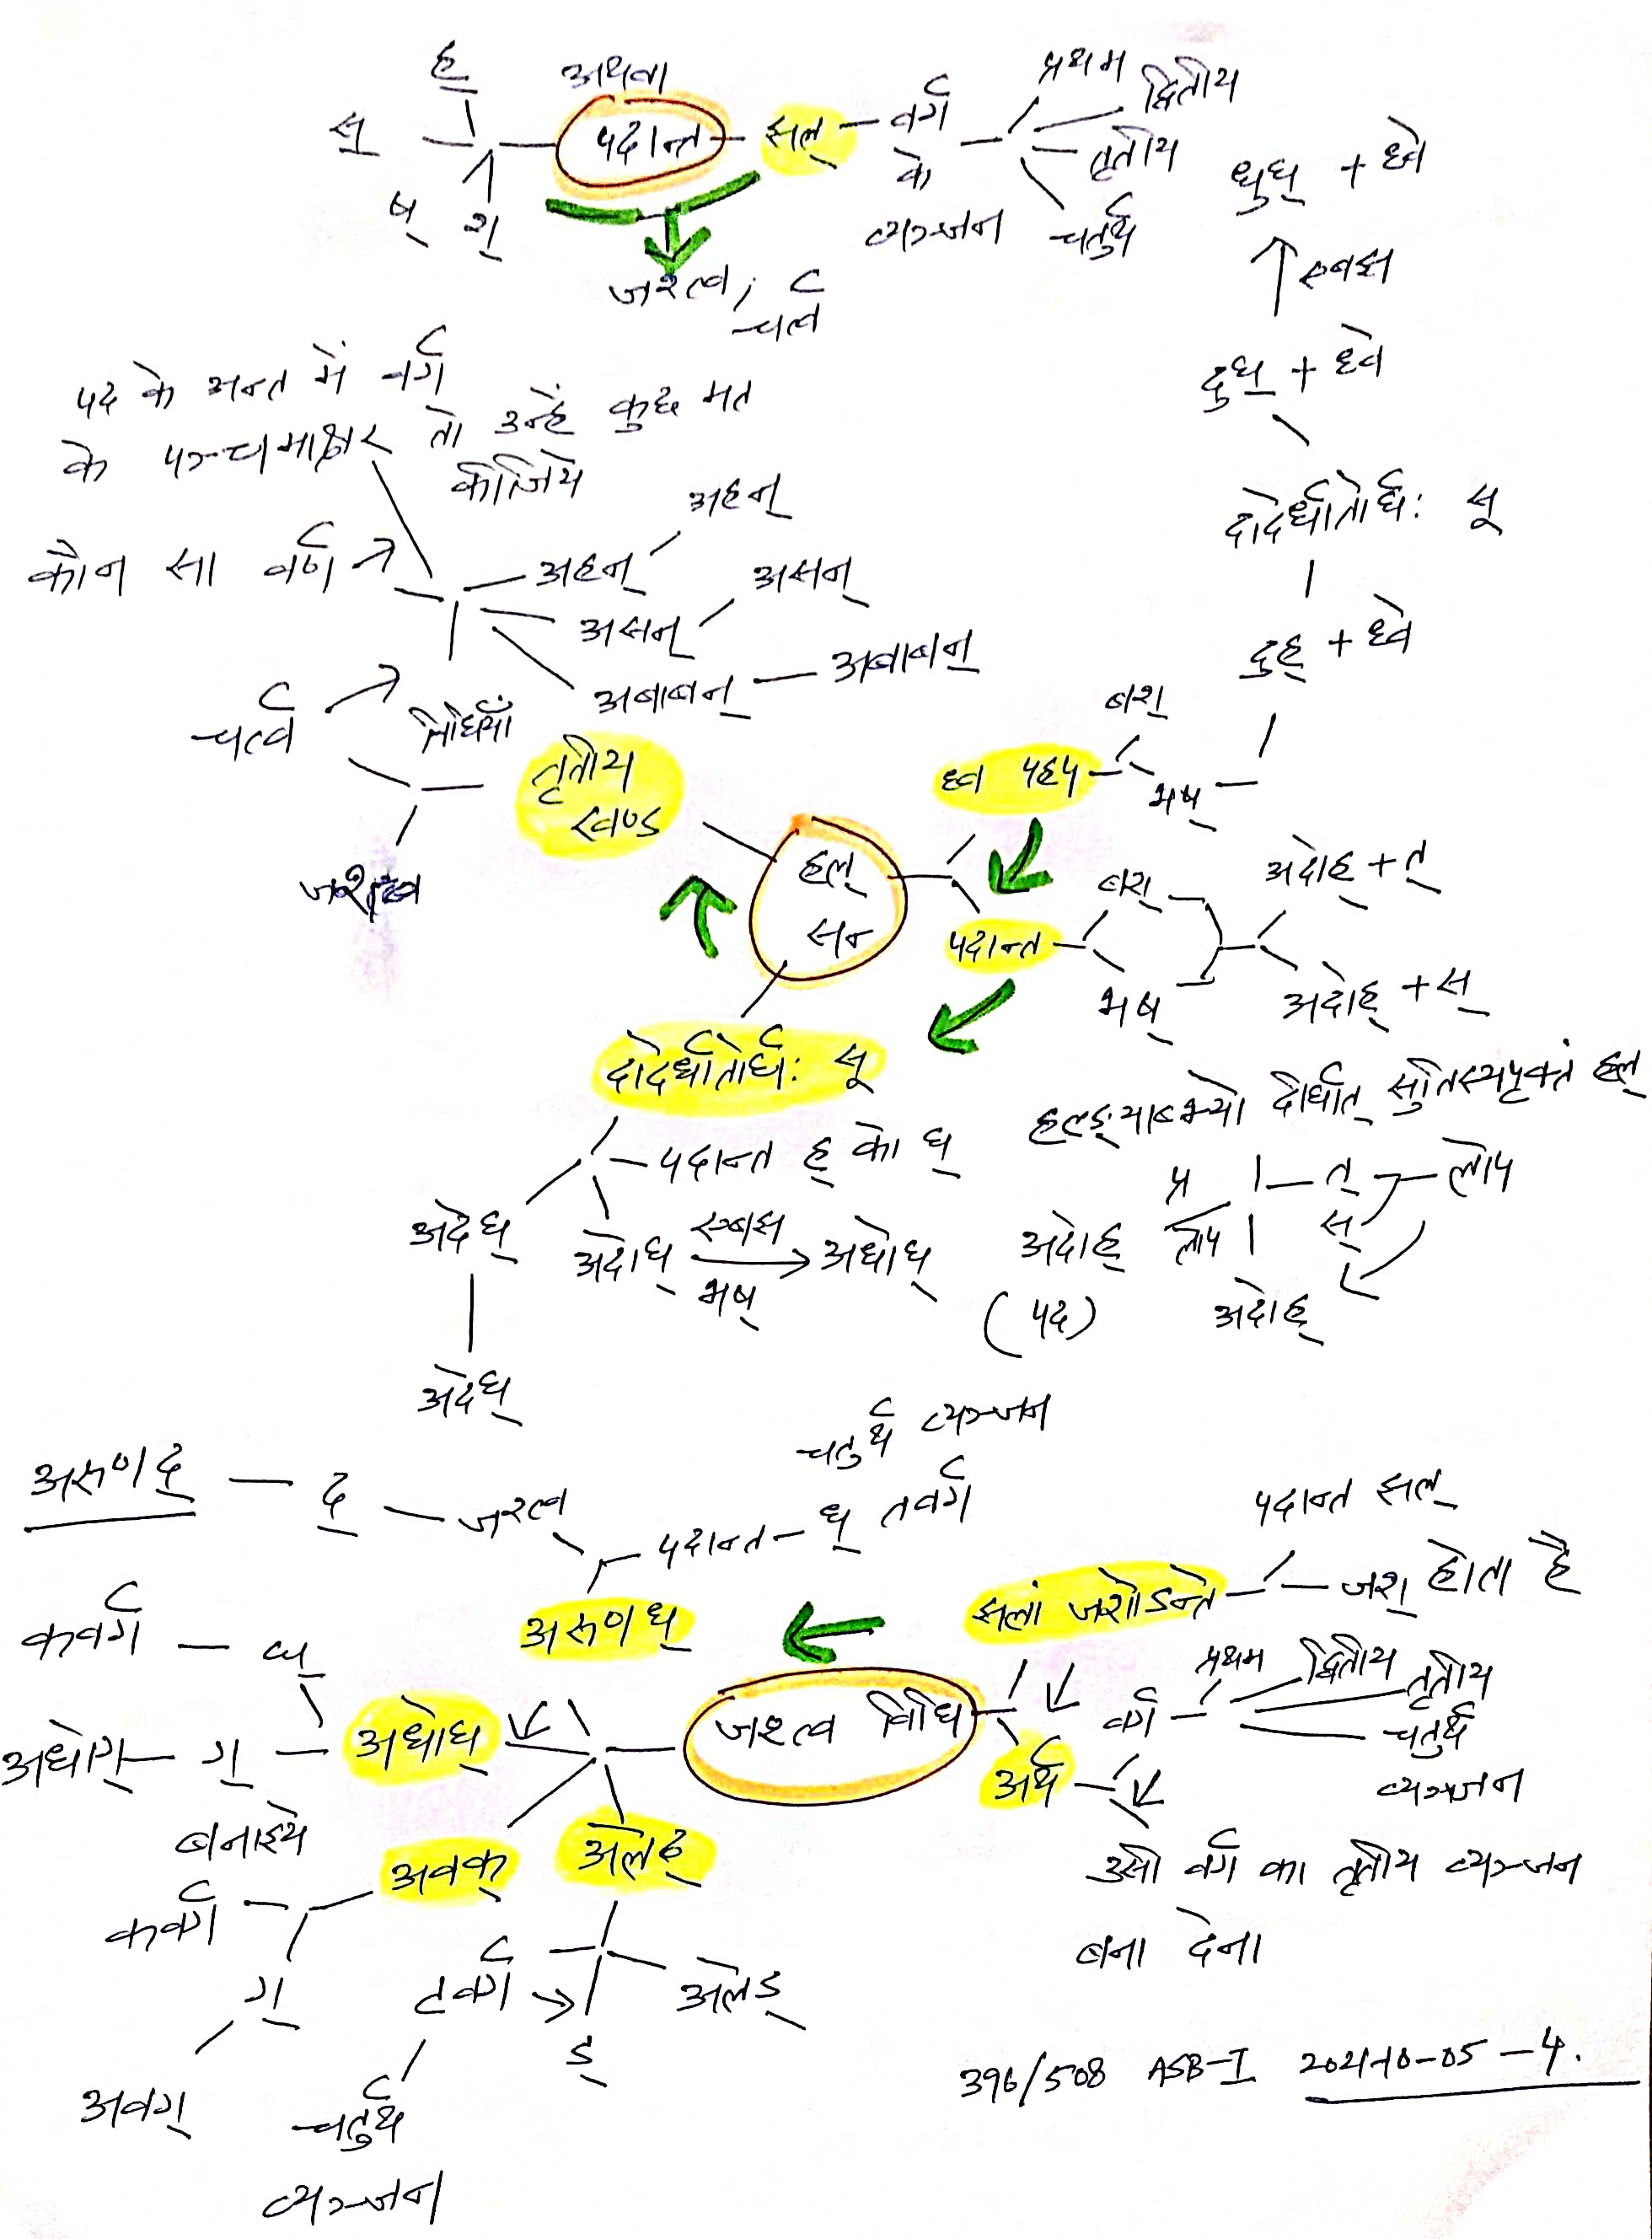 ह्
अथवा
स्
पदान्त
झल्
वर्ग
के
व्यञ्जन
प्रथम
द्वितीय
तृतीय
चतुर्थ
ष्
श्
जश्त्व, चर्त्व
धुघ् + ध्वे
स्बझ
दुघ् + ध्वे
दादेर्धातोर्घः सू
दुह् + ध्वे
पद के अन्त में वर्ग
के पञ्चमाक्षर तो उन्हें कुछ मत
कीजिये
कौन सा वर्ण
अहन्
अहन्
असन्
असन्
अबाबन्
अबाबन्
चर्त्व
विधियाँ
तृतीय
खण्ड
जश्त्व
हल्
सन्
बश्
भष्
पदान्त
बश्
भष्
अदोह् + त्
अदोह् + स्
दादेर्धातोर्घः सू
पदान्त ह् को घ्
हल्ङ्याब्भ्यो दीर्घात् सुतिस्यपृक्तं हल्
अदोघ्
स्बझ
भष्
अधोघ्
अदोह्
(पद)
प्र
लोप
त्
स्
लोप
अदोह्
चतुर्थ व्यञ्जन
अरुणद्
द्
जश्त्व
पदान्त
ध् तवर्ग
अरुणध्
पदान्त झल्
झलां जशोऽन्ते
जश् होता है
कवर्ग
घ्
अधोग्
ग्
अधोघ्
बनाइये
जश्त्व विधि
वर्ग
प्रथम
द्वितीय
तृतीय
चतुर्थ
व्यञ्जन
अर्थ
उसी वर्ग का तृतीय व्यञ्जन
बना देना
अवक्
कवर्ग
ग्
अवग्
अलेढ्
टवर्ग
ड्
अलेड्
चतुर्थ
व्यञ्जन
396/508 ASB-I 2021-10-05-4.